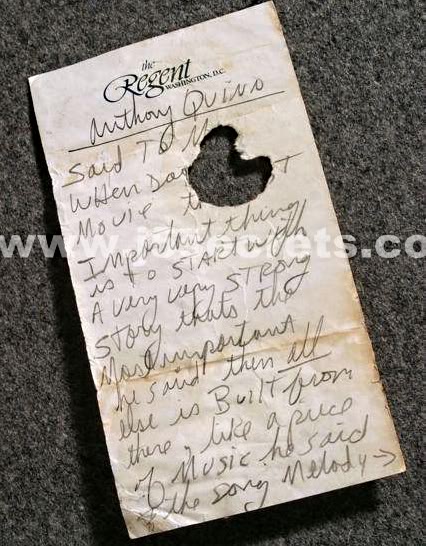 the
Regent
WASHINGTON, D.C.
Anthony Quinn
Said To
When
Movie
Important thing
is to START with
A very very STRONG
STORY thats the
Most important
he said then all
else is Built from
there like a piece
of Music he said
the song Melody →